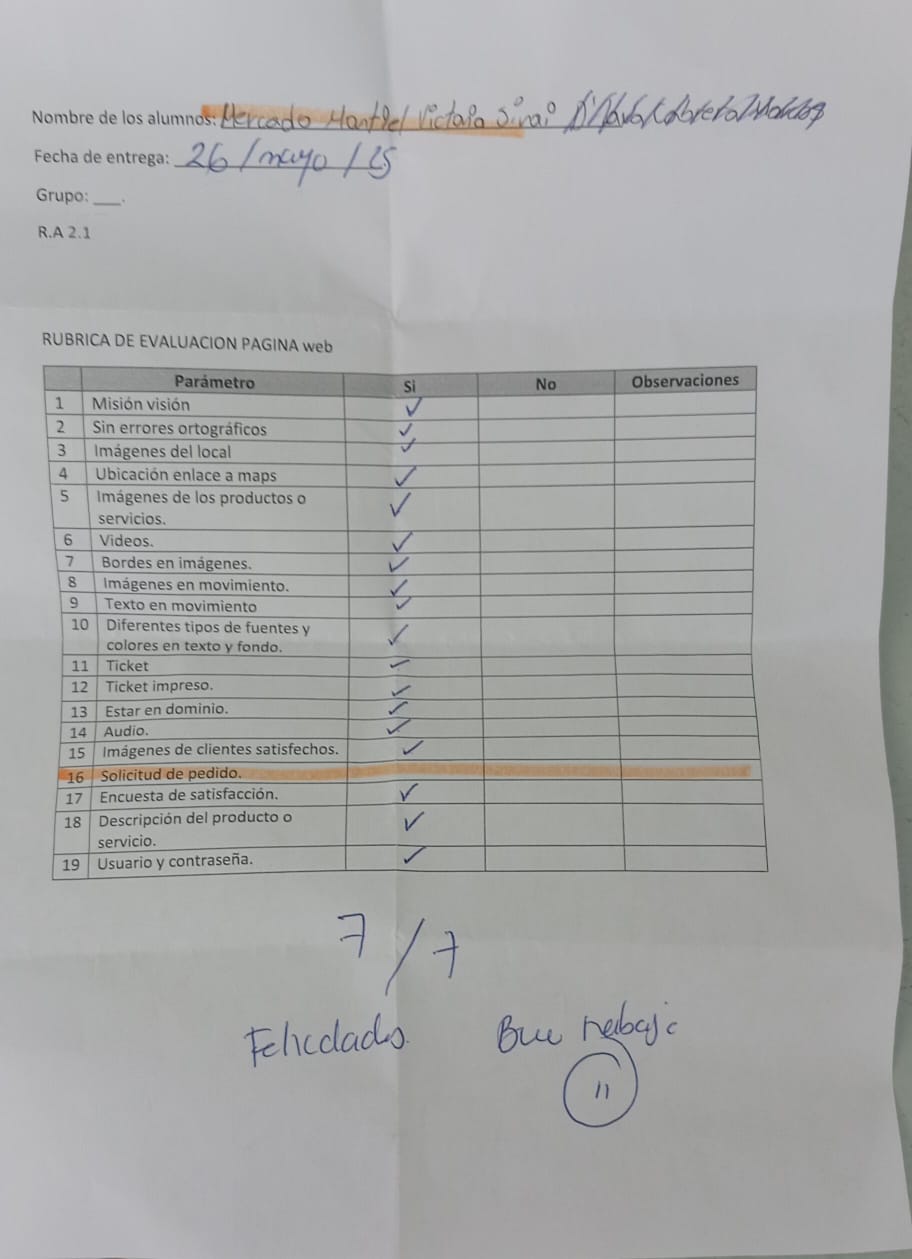 Nombre de los alumnos: Mercado Montiel Victoria Sinai
Fecha de entrega: 26/mayo/25
Grupo: ____.
R.A 2.1
RUBRICA DE EVALUACION PAGINA web
Parámetro Si No Observaciones
1 Misión visión ✓
2 Sin errores ortográficos ✓
3 Imágenes del local ✓
4 Ubicación enlace a maps ✓
5 Imágenes de los productos o ✓
servicios.
6 Videos. ✓
7 Bordes en imágenes. ✓
8 Imágenes en movimiento. ✓
9 Texto en movimiento ✓
10 Diferentes tipos de fuentes y ✓
colores en texto y fondo.
11 Ticket ✓
12 Ticket impreso. ✓
13 Estar en dominio. ✓
14 Audio. ✓
15 Imágenes de clientes satisfechos. ✓
16 Solicitud de pedido.
17 Encuesta de satisfacción. ✓
18 Descripción del producto o ✓
servicio.
19 Usuario y contraseña. ✓
7/7
Felicidades. Buen trabajo
11